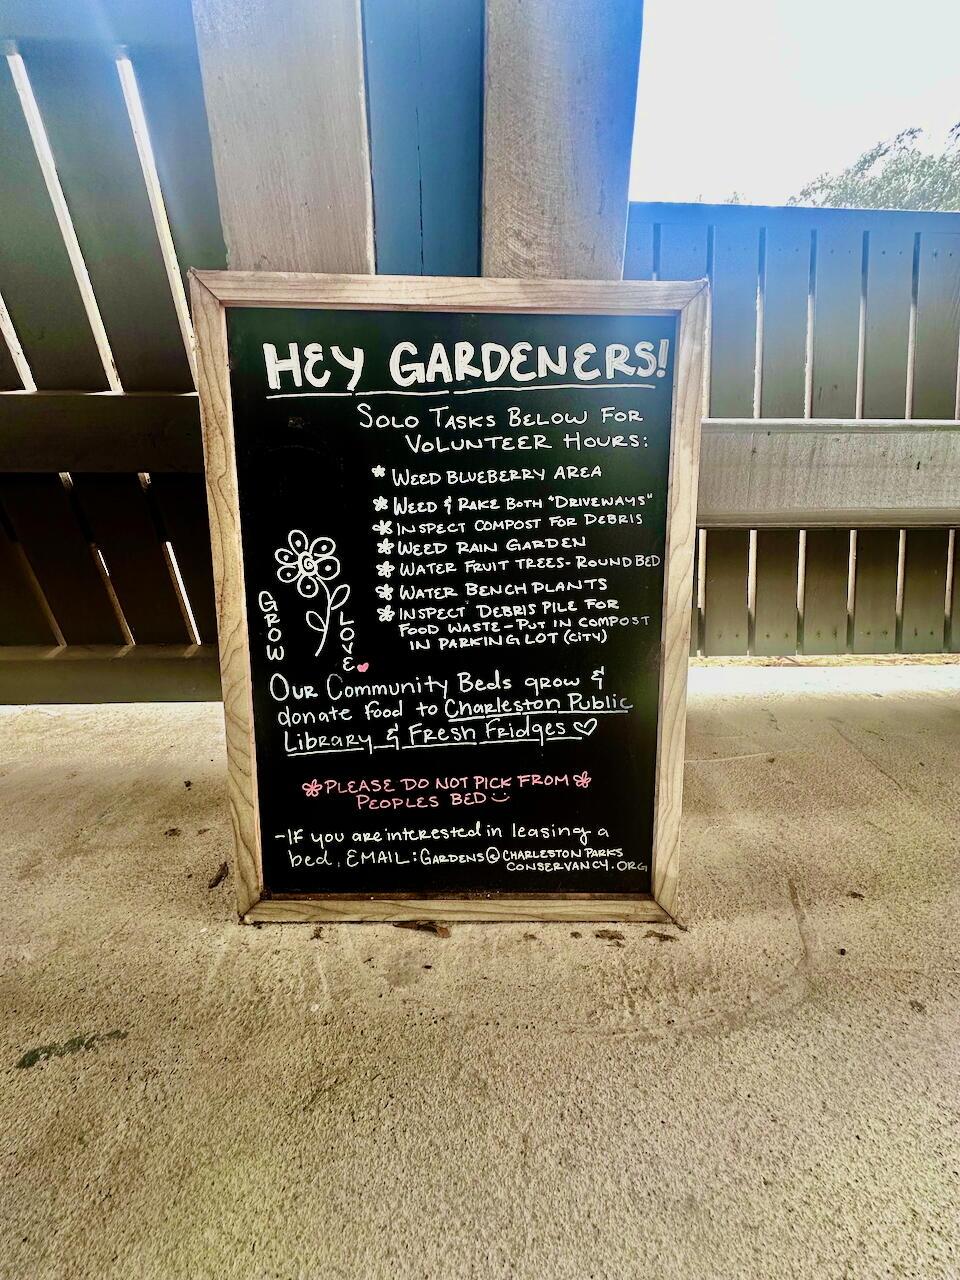 HEY GARDENERS!
SOLO TASKS BELOW FOR
VOLUNTEER HOURS:
* WEED BLUEBERRY AREA
* WEED & RAKE BOTH "DRIVEWAYS"
* INSPECT COMPOST FOR DEBRIS
* WEED RAIN GARDEN
* WATER FRUIT TREES - ROUND BED
* WATER BENCH PLANTS
* INSPECT DEBRIS PILE FOR
FOOD WASTE - PUT IN COMPOST
IN PARKING LOT (CITY)
GROW
LOVE
OUR Community Beds grow &
donate food to Charleston Public
Library & Fresh Fridges ♡
PLEASE DO NOT PICK FROM
PEOPLES BED
- IF you are interested in leasing a
bed, EMAIL: GARDENS@CHARLESTON PARKS
CONSERVANCY.ORG